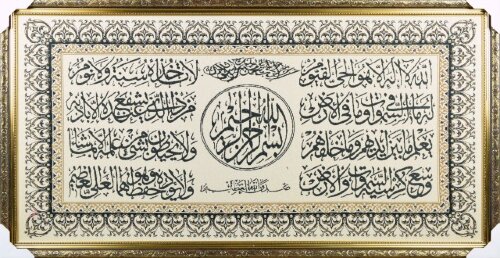 الله لا إله إلا هو الحي القيوم
لا تأخذه سنة ولا نوم
له ما في السموات وما في الأرض
من ذا الذي يشفع عنده إلا بإذنه
يعلم ما بين أيديهم وما خلفهم
ولا يحيطون بشيء من علمه إلا بما شاء
وسع كرسيه السموات والأرض
ولا يؤده حفظهما وهو العلي العظيم
بسم الله الرحمن الرحيم